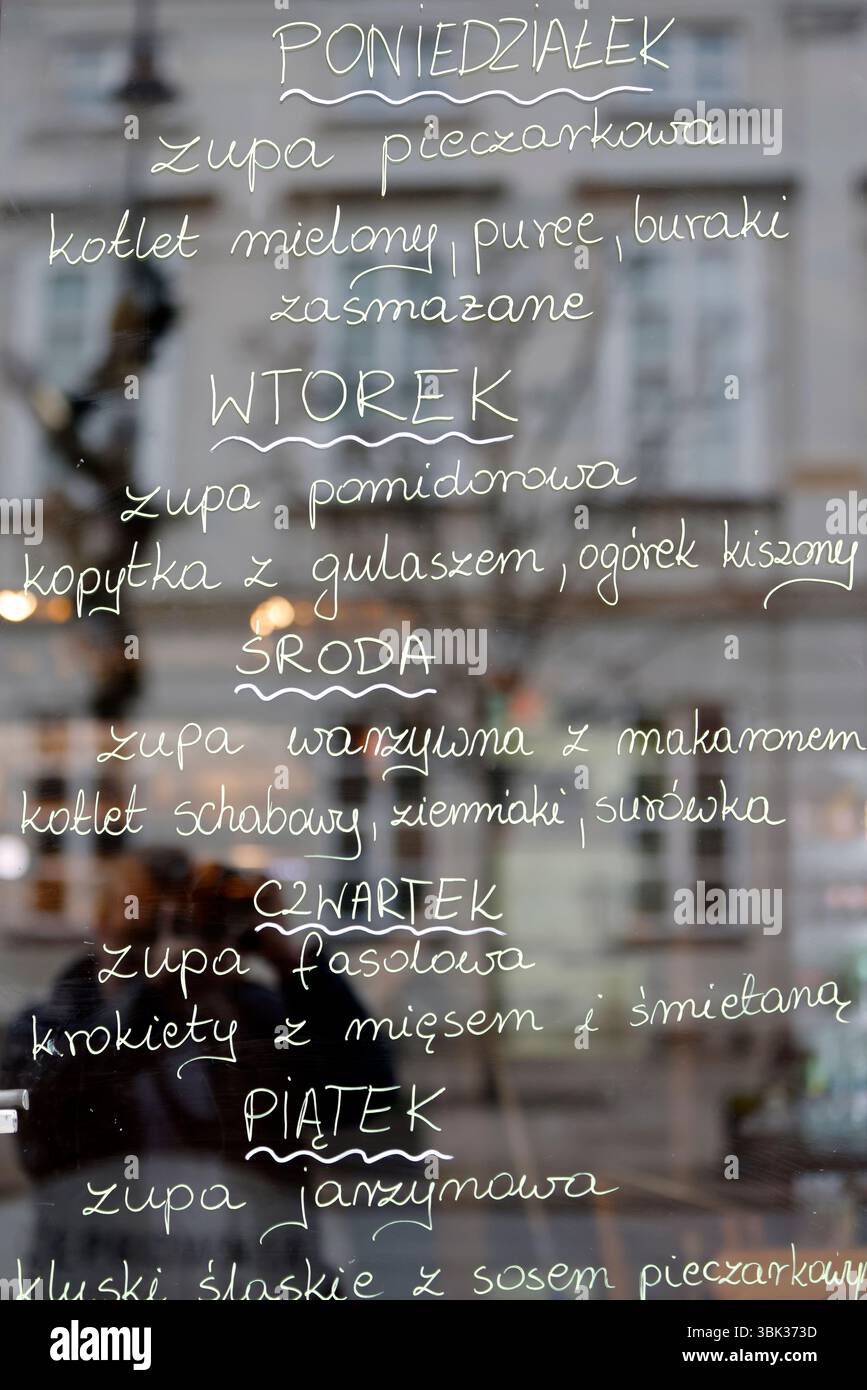 PONIEDZIAŁEK
zupa pieczarkowa
kotlet mielony, puree, buraki
zasmażane
WTOREK
zupa pomidorowa
kopytka z gulaszem, ogórek kiszony
ŚRODA
zupa warzywna z makaronem
kotlet schabowy, ziemniaki, surówka
CZWARTEK
zupa fasolowa
krokiety z mięsem i śmietaną
PIĄTEK
zupa jarzynowa
kluski śląskie z sosem pieczarkowy
alamy
Image ID: 3BK373D
www.alamy.com